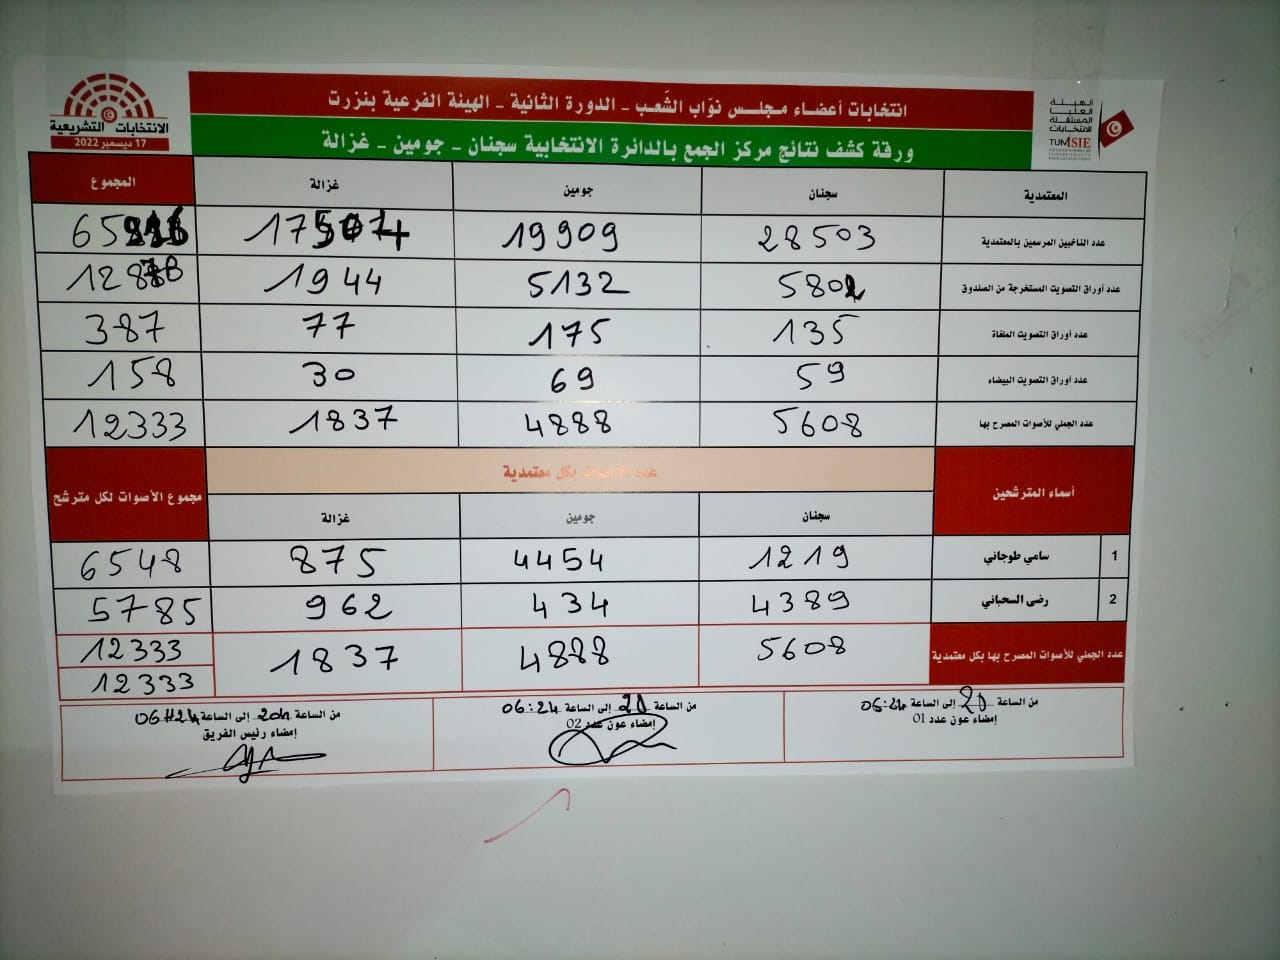 انتخابات أعضاء مجلس نوّاب الشّعب - الدورة الثانية - الهيئة الفرعية بنزرت
ورقة كشف نتائج مركز الجمع بالدائرة الانتخابية سجنان - جومين - غزالة
الهيئة
العليا
المستقلة
للانتخابات
TUNISIE
الانتخابات التشريعية
17 ديسمبر 2022
المعتمدية سجنان جومين غزالة المجموع
عدد الناخبين المرسمين بالمعتمدية 28503 19909
عدد أوراق التصويت المستخرجة من الصندوق 5802 5132 1944
عدد أوراق التصويت الملغاة 135 175 77 387
عدد أوراق التصويت البيضاء 59 69 30 158
عدد الجملي للأصوات المصرح بها 5608 4888 1837 12333
أسماء المترشحين عدد الأصوات بكل معتمدية مجموع الأصوات لكل مترشح
سجنان جومين غزالة
1 سامي طوجاني 1219 4454 875 6548
2 رضى السحباني 4389 434 962 5785
عدد الجملي للأصوات المصرح بها بكل معتمدية 5608 4888 1837 12333
12333
من الساعة 20 إلى الساعة 06:24
إمضاء عون عدد 01
من الساعة 20 إلى الساعة 06:24
إمضاء عون عدد 02
من الساعة 20h إلى الساعة 06H24
إمضاء رئيس الفريق